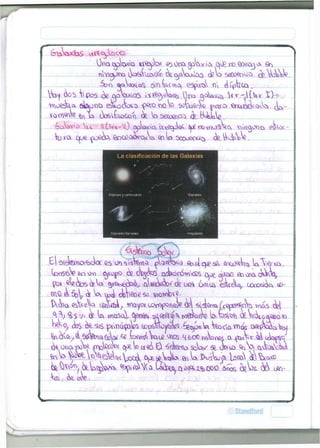 Galaxias irregulares
Una galaxia irregular es una galaxia que no encaja en
ninguna clasificación de galaxias de la secuencia de Hubble.
Son galaxias sin forma espiral ni elíptica.
Hay dos tipos de galaxias irregulares. Una galaxia Irr-I (Irr I)
muestra alguna estructura pero no lo suficiente para encuadrarla cla-
ramente en la clasificación de la secuencia de Hubble.
galaxia irregular que no muestra ninguna estruc-
tura que pueda encuadrarla en la secuencia de Hubble.
La clasificación de las Galaxias
Elípticas y Lenticulares
Espirales
Espirales Barradas
Irregulares
Sistema Solar
El sistema solar es un sistema planetario en el que se encuentra la Tierra.
Consiste en un grupo de objetos astronómicos que giran en una órbita,
por efectos de la gravedad, alrededor de una única estrella conocida co-
mo el Sol, de la cual obtiene su nombre.
Dicha estrella central, mayor componente del sistema (representa más del
de la masa), genera su energía mediante la fusión de hidrógeno en
helio, dos de sus principales constituyentes. Según la teoría más aceptada hoy
en día, el sistema solar se formó hace unos 4600 millones a partir del colapso
de una nube molecular que lo creó. El sistema solar se ubica en la actualidad
en la Nube Interestelar Local que se halla en la Burbuja Local del Brazo
de Orión, de la galaxia espiral Vía Láctea, a unos 28.000 años de luz del cen-
tro de esta.
Standford